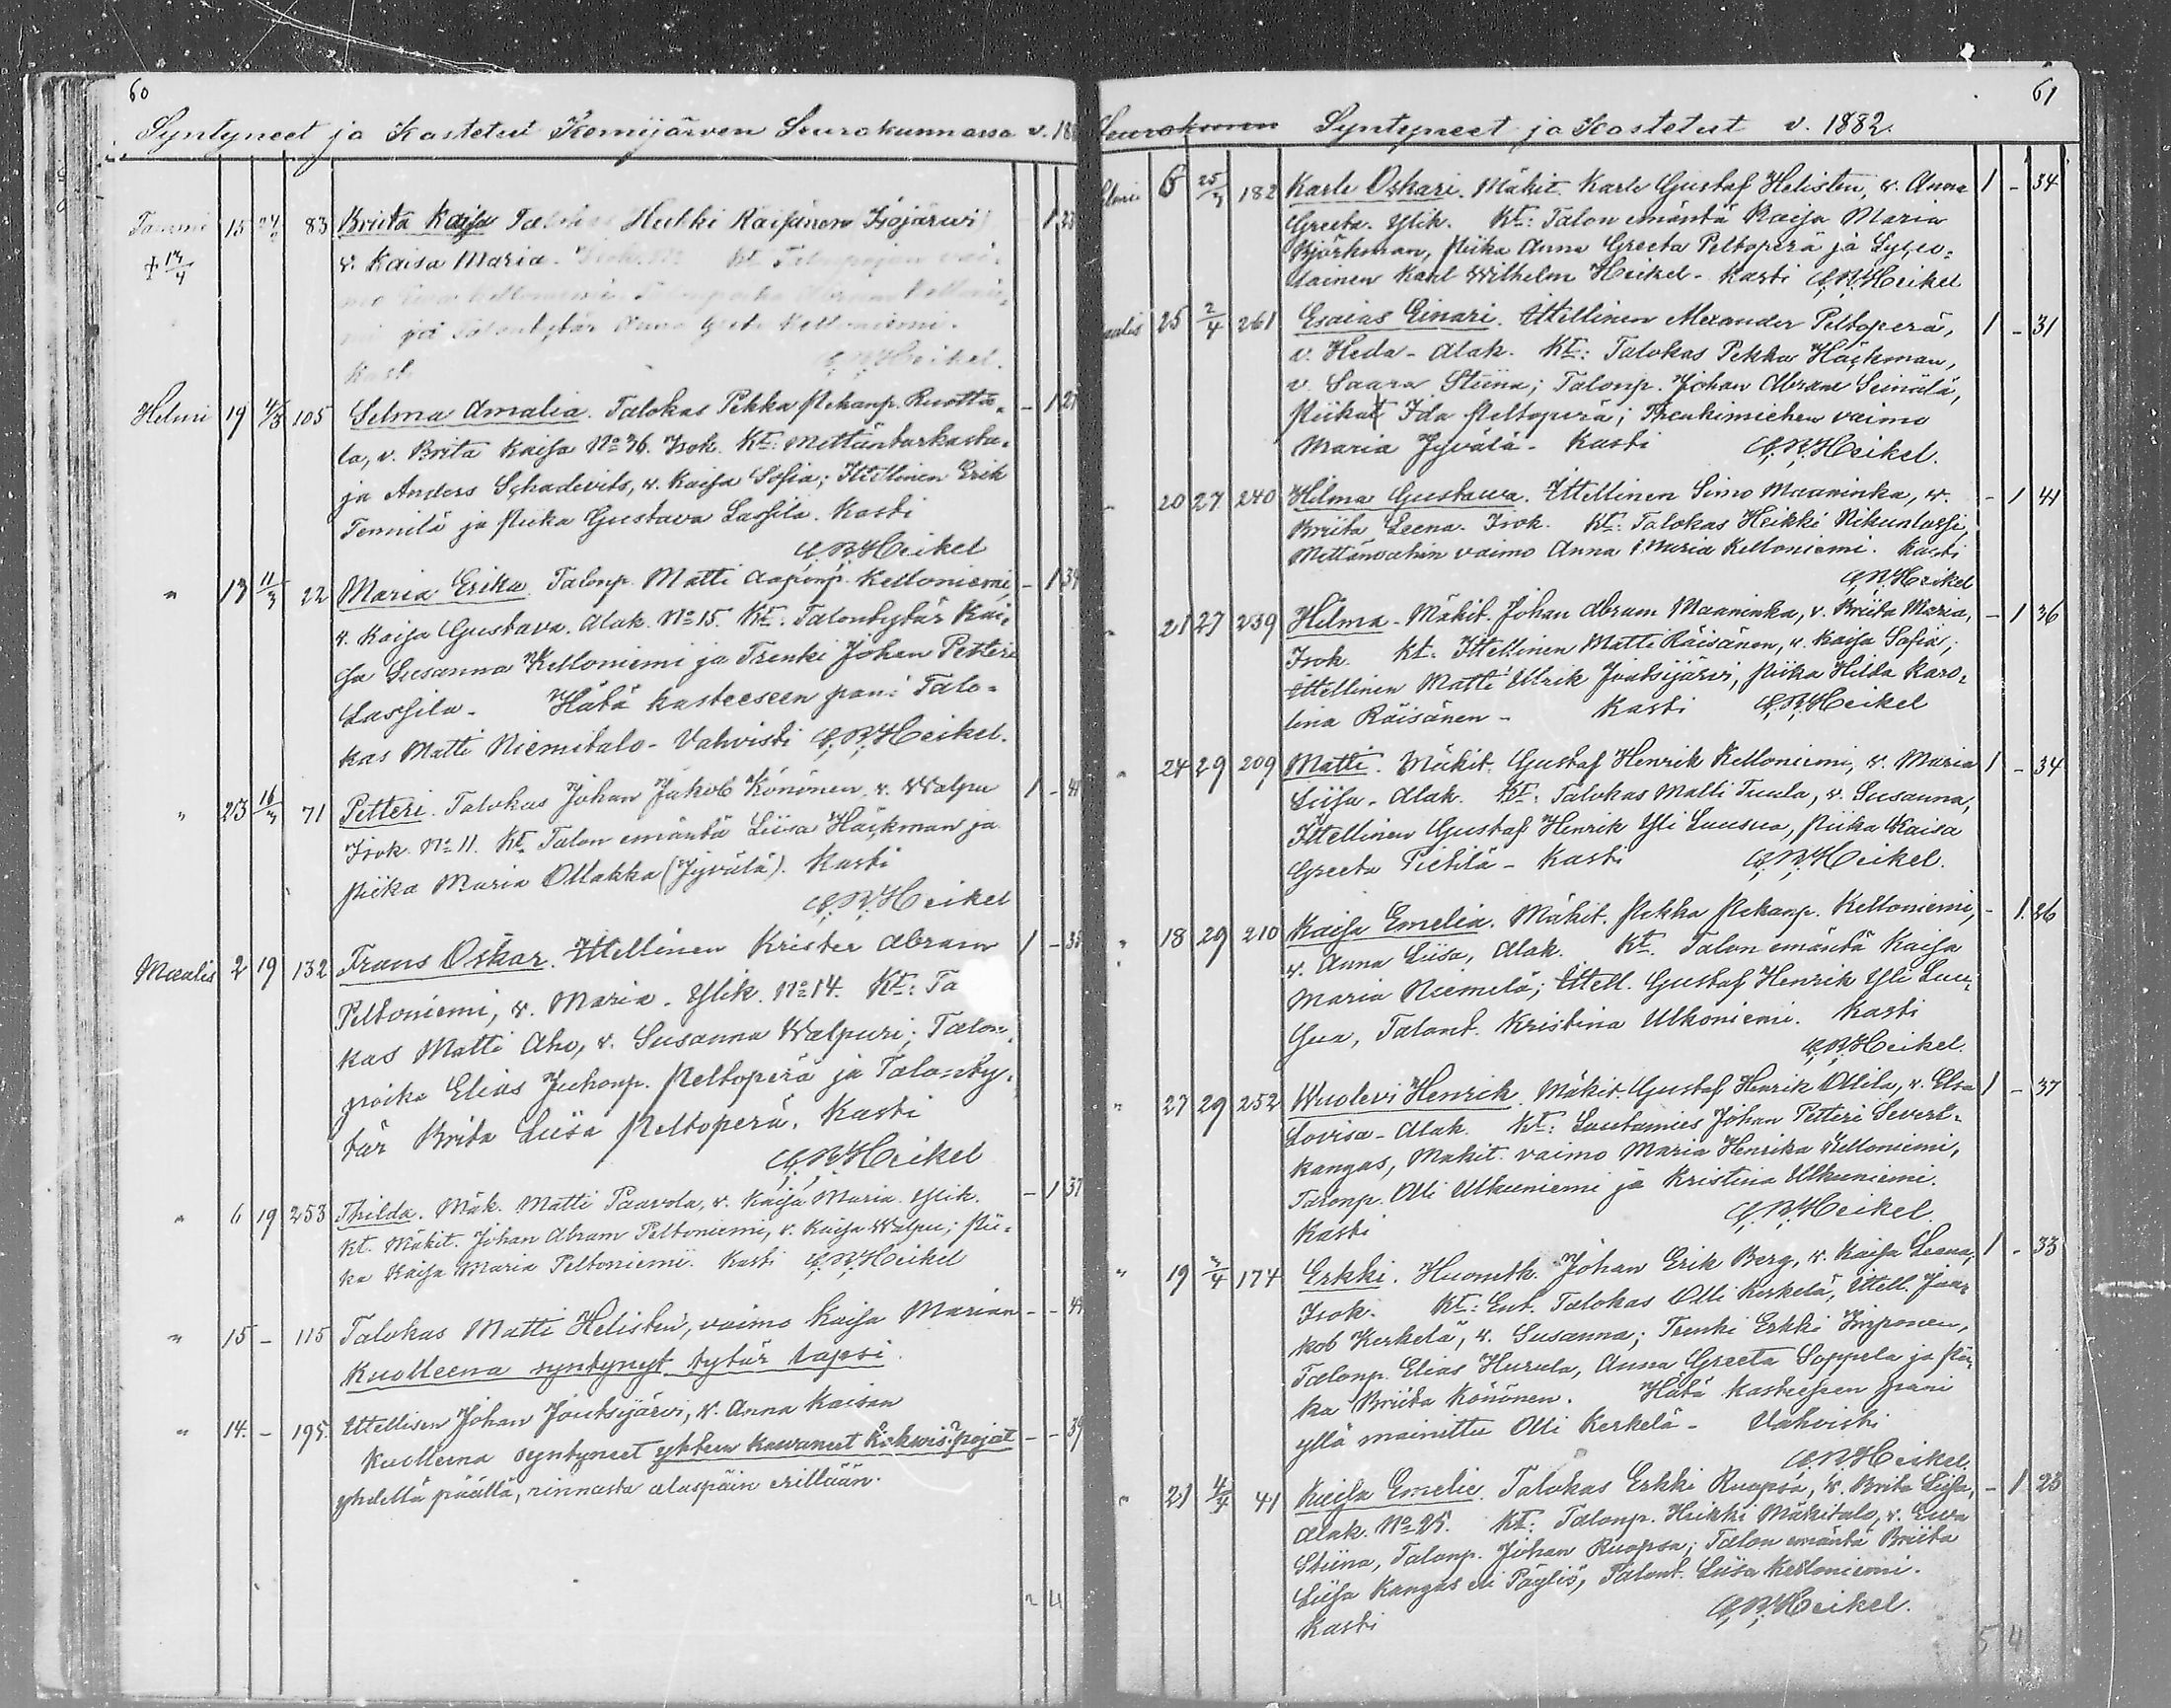 60
Syntyneet ja Kastetut Kemijärven Seurakunnassa v. 18
Tammi 15 83 Briita Kaisa Heikki Isojärwi 1
+ 14/4 v. Kaisa Maria. Kt. Talonpojan vai-
ja Talontytär Anna Greta Kelloniemi.
Kasti Heikel.
Helmi 19 4/3 105 Selma Amalia. Talokas Pekka Pekanp. Ruotta- - 1 27
la, v. Brita Kaisa No 36. Isok. Kt: Mettäntarkasta-
ja Anders Schadevits, v. Kaisa Sofia; Ittellinen Erik
Tennilä ja Piika Gustava Lassila. Kasti
Heikel
" 13 11/3 22 Maria Erika. Talonp. Matti Aaponp. Kelloniemi, - 1 39
v. Kaisa Gustava. Alak. No 15. Kt. Talontytär Kai-
sa Susanna Kelloniemi ja Trenki Johan Petteri
Lassila - Hätä kasteeseen pani Talo-
kas Matti Niemitalo - Vahvisti Heikel.
" 23 16/3 71 Petteri. Talokas Johan Jakob Könönen, v. Walpu 1 -
Isok. No 11. Kt. Talon emäntä Liisa Häckman ja
Piika Maria Ollakka (Jyvälä). Kasti
Heikel
Maalis 2 19 132 Frans Oskar. Ittellinen Krister Abram 1 -
Peltoniemi, v. Maria. Ylik. No 14. Kt: Ta
kas Matti Aho, v. Susanna Walpuri; Talon-
poika Elias Juhonp. Peltoperä ja Talonty-
tär Brita Liisa Peltoperä. Kasti
Heikel
" 6 19 253 Thilda. Mäk. Matti Paavola, v. Kaisa Maria Ylik. - 1 37
Kt. Mäkit. Johan Abram Peltoniemi, v. Kaisa Walpu; Pii-
ka Kaisa Maria Peltoniemi. Kasti Heikel
" 15 - 115 Talokas Matti Helisten, vaimo Kaisa Marian - -
Kuolleena syntynyt tytär lapsi.
" 14. - 195. Ittellisen Johan Joutsijärvi, v. Anna Kaisan
Kuolleena syntyneet yhteen kasvaneet pojat - - 39
yhdellä päällä, rinnasta alaspäin erillään.
2 4
61
Seurakunn Syntyneet ja Kastetut v. 1882.
Helmi 6 25/3 182 Karle Oskari. Mäkit. Karle Gustaf Helisten, v. Anna 1 - 34
Greeta. Ylik. Kt: Talon emäntä Kaisa Maria
Björkman, Piika Anna Greeta Peltoperä ja Lyseo-
lainen Karl Wilhelm Heikel - Kasti Heikel
aalis 25 2/4 261 Esaias Einari. Ittellinen Alexander Peltoperä, 1 - 31
v. Heda - Alak. Kt: Talokas Pekka Häckman,
v. Saara Stiina; Talonp. Johan Abram Seinälä,
Piikat Ida Peltoperä; Trenkimiehen vaimo
Maria Jyvälä - Kasti Heikel.
" 20 27 240 Hilma Gustawa. Ittellinen Simo Maaninka, v. - 1 41
Briita Leena. Isok. Kt: Talokas Heikki Nikunlassi,
Mettänvahin vaimo Anna Maria Kelloniemi. Kasti
Heikel
" 21 27 239 Hilma - Mäkit. Johan Abram Maaninka, v. Briita Maria, - 1 36
Isok. Kt. Ittellinen Matti Räisänen, v. Kaisa Sofia;
Ittellinen Matti Ulrik Joutsijärvi, Piika Hilda Karo-
lina Räisänen - Kasti Heikel
" 24 29 209 Matti. Mäkit. Gustaf Henrik Kelloniemi, v. Maria 1 - 34
Liisa - Alak. Kt: Talokas Matti Tuula, v. Susanna,
Ittellinen Gustaf Henrik Yli Luusua, Piika Kaisa
Greeta Pietilä - Kasti Heikel.
" 18 29 210 Kaisa Emelia. Mäkit. Pekka Pekanp. Kelloniemi, - 1 26
v. Anna Liisa, Alak. Kt. Talon emäntä Kaisa
Maria Niemelä; Ittell. Gustaf Henrik Yli Luu-
sua, Talont. Kristina Ulkoniemi. Kasti
Heikel.
" 27 29 252 Wuolevi Henrik. Mäkit. Gustaf Henrik Ollila, v. Elsa 1 - 37
Lovisa - Alak. Kt: Lautamies Johan Petteri Severi-
kangas, Mäkit. vaimo Maria Henrika Kelloniemi,
Talonp. Olli Ulkuniemi ja Kristina Ulkuniemi.
Kasti Heikel.
" 19 3/4 174 Erkki. Huonetk. Johan Erik Berg, v. Kaisa Leena, 1 - 33
Isok. Kt: Ent. Talokas Olli Kerkelä, Ittell. Jaa-
kob Kerkelä, v. Susanna; Trenki Erkki Imponen,
Talonp. Elias Hurula, Anna Greeta Soppela ja Pii-
ka Briita Könönen. Hätä kasteeseen pani
yllä mainittu Olli Kerkelä - Vahvisti
Heikel.
" 21 4/4 41 Kaisa Emelie. Talokas Erkki Ruopsa, v. Brita Liisa, - 1 23
Alak. No 25. Kt: Talonp. Heikki Mäkitalo, v. Eva
Stiina, Talonp. Johan Ruopsa; Talon emäntä Briita
Liisa Kangas eli Pöyliö, Talont. Liisa Kelloniemi.
Kasti Heikel.
5 4